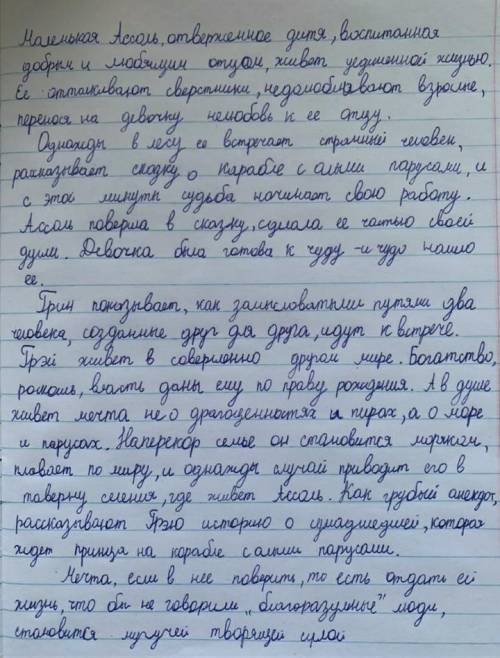 Маленькая Ассоль, отверженное дитя, воспитанная
добрым и любящим отцом, живет уединенной жизнью.
Ее отталкивают сверстники, недолюбливают взрослые,
перенося на девочку нелюбовь к ее отцу.
Однажды в лесу ее встречает странный человек,
рассказывает сказку о корабле с алыми парусами, и
с этой минуты судьба начинает свою работу.
Ассоль поверила в сказку, сделала ее частью своей
души. Девочка была готова к чуду - и чудо нашло
ее.
Грин показывает, как замысловатыми путями два
человека, созданные друг для друга, идут к встрече.
Грэй живет в совершенно другом мире. Богатство,
роскошь, власть даны ему по праву рождения. А в душе
живет мечта не о драгоценностях и пирах, а о море
и парусах. Наперекор семье он становится моряком,
плавает по миру, и однажды случай приводит его в
таверну селения, где живет Ассоль. Как грубый анекдот,
рассказывают Грэю историю о сумасшедшей, которая
ждет принца на корабле с алыми парусами.
Мечта, если в нее поверить, то есть отдать ей
жизнь, что бы не говорили „благоразумные" люди,
становится могучей творящей силой